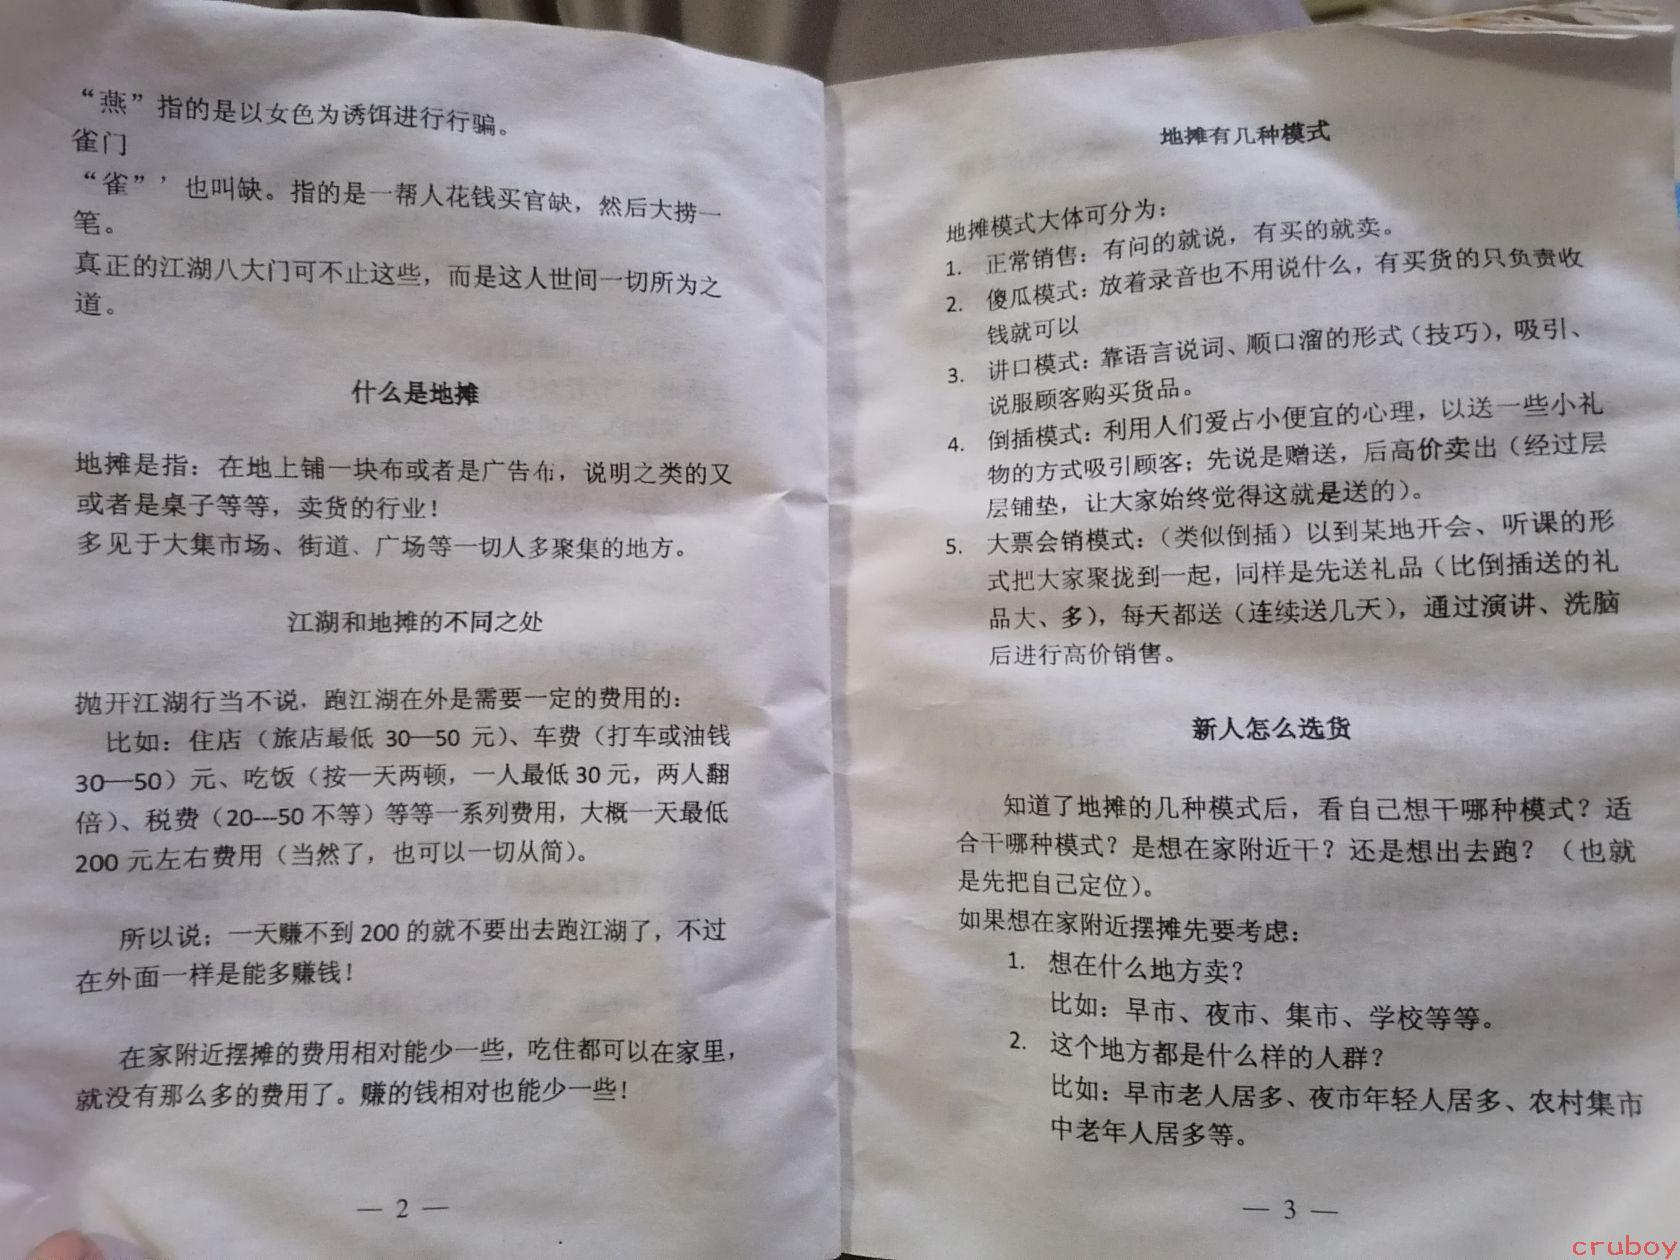 “燕”指的是以女色为诱饵进行行骗。
雀门
“雀”’也叫缺。指的是一帮人花钱买官缺，然后大捞一
笔。
真正的江湖八大门可不止这些，而是这人世间一切所为之
道。
什么是地摊
地摊是指：在地上铺一块布或者是广告布，说明之类的又
或者是桌子等等，卖货的行业！
多见于大集市场、街道、广场等一切人多聚集的地方。
江湖和地摊的不同之处
抛开江湖行当不说，跑江湖在外是需要一定的费用的：
比如：住店（旅店最低 30—50 元）、车费（打车或油钱
30—50）元、吃饭（按一天两顿，一人最低 30 元，两人翻
倍）、税费（20---50 不等）等等一系列费用，大概一天最低
200 元左右费用（当然了，也可以一切从简）。
所以说；一天赚不到 200 的就不要出去跑江湖了，不过
在外面一样是能多赚钱！
在家附近摆摊的费用相对能少一些，吃住都可以在家里，
就没有那么多的费用了。赚的钱相对也能少一些！
— 2 —
地摊有几种模式
地摊模式大体可分为：
1. 正常销售：有问的就说，有买的就卖。
2. 傻瓜模式：放着录音也不用说什么，有买货的只负责收
钱就可以
3. 讲口模式：靠语言说词、顺口溜的形式（技巧），吸引、
说服顾客购买货品。
4. 倒插模式：利用人们爱占小便宜的心理，以送一些小礼
物的方式吸引顾客；先说是赠送，后高价卖出（经过层
层铺垫，让大家始终觉得这就是送的）。
5. 大票会销模式：（类似倒插）以到某地开会、听课的形
式把大家聚拢到一起，同样是先送礼品（比倒插送的礼
品大、多），每天都送（连续送几天），通过演讲、洗脑
后进行高价销售。
新人怎么选货
知道了地摊的几种模式后，看自己想干哪种模式？适
合干哪种模式？是想在家附近干？还是想出去跑？（也就
是先把自己定位）。
如果想在家附近摆摊先要考虑：
1. 想在什么地方卖？
比如：早市、夜市、集市、学校等等。
2. 这个地方都是什么样的人群？
比如：早市老人居多、夜市年轻人居多、农村集市
中老年人居多等。
— 3 —
cruboy